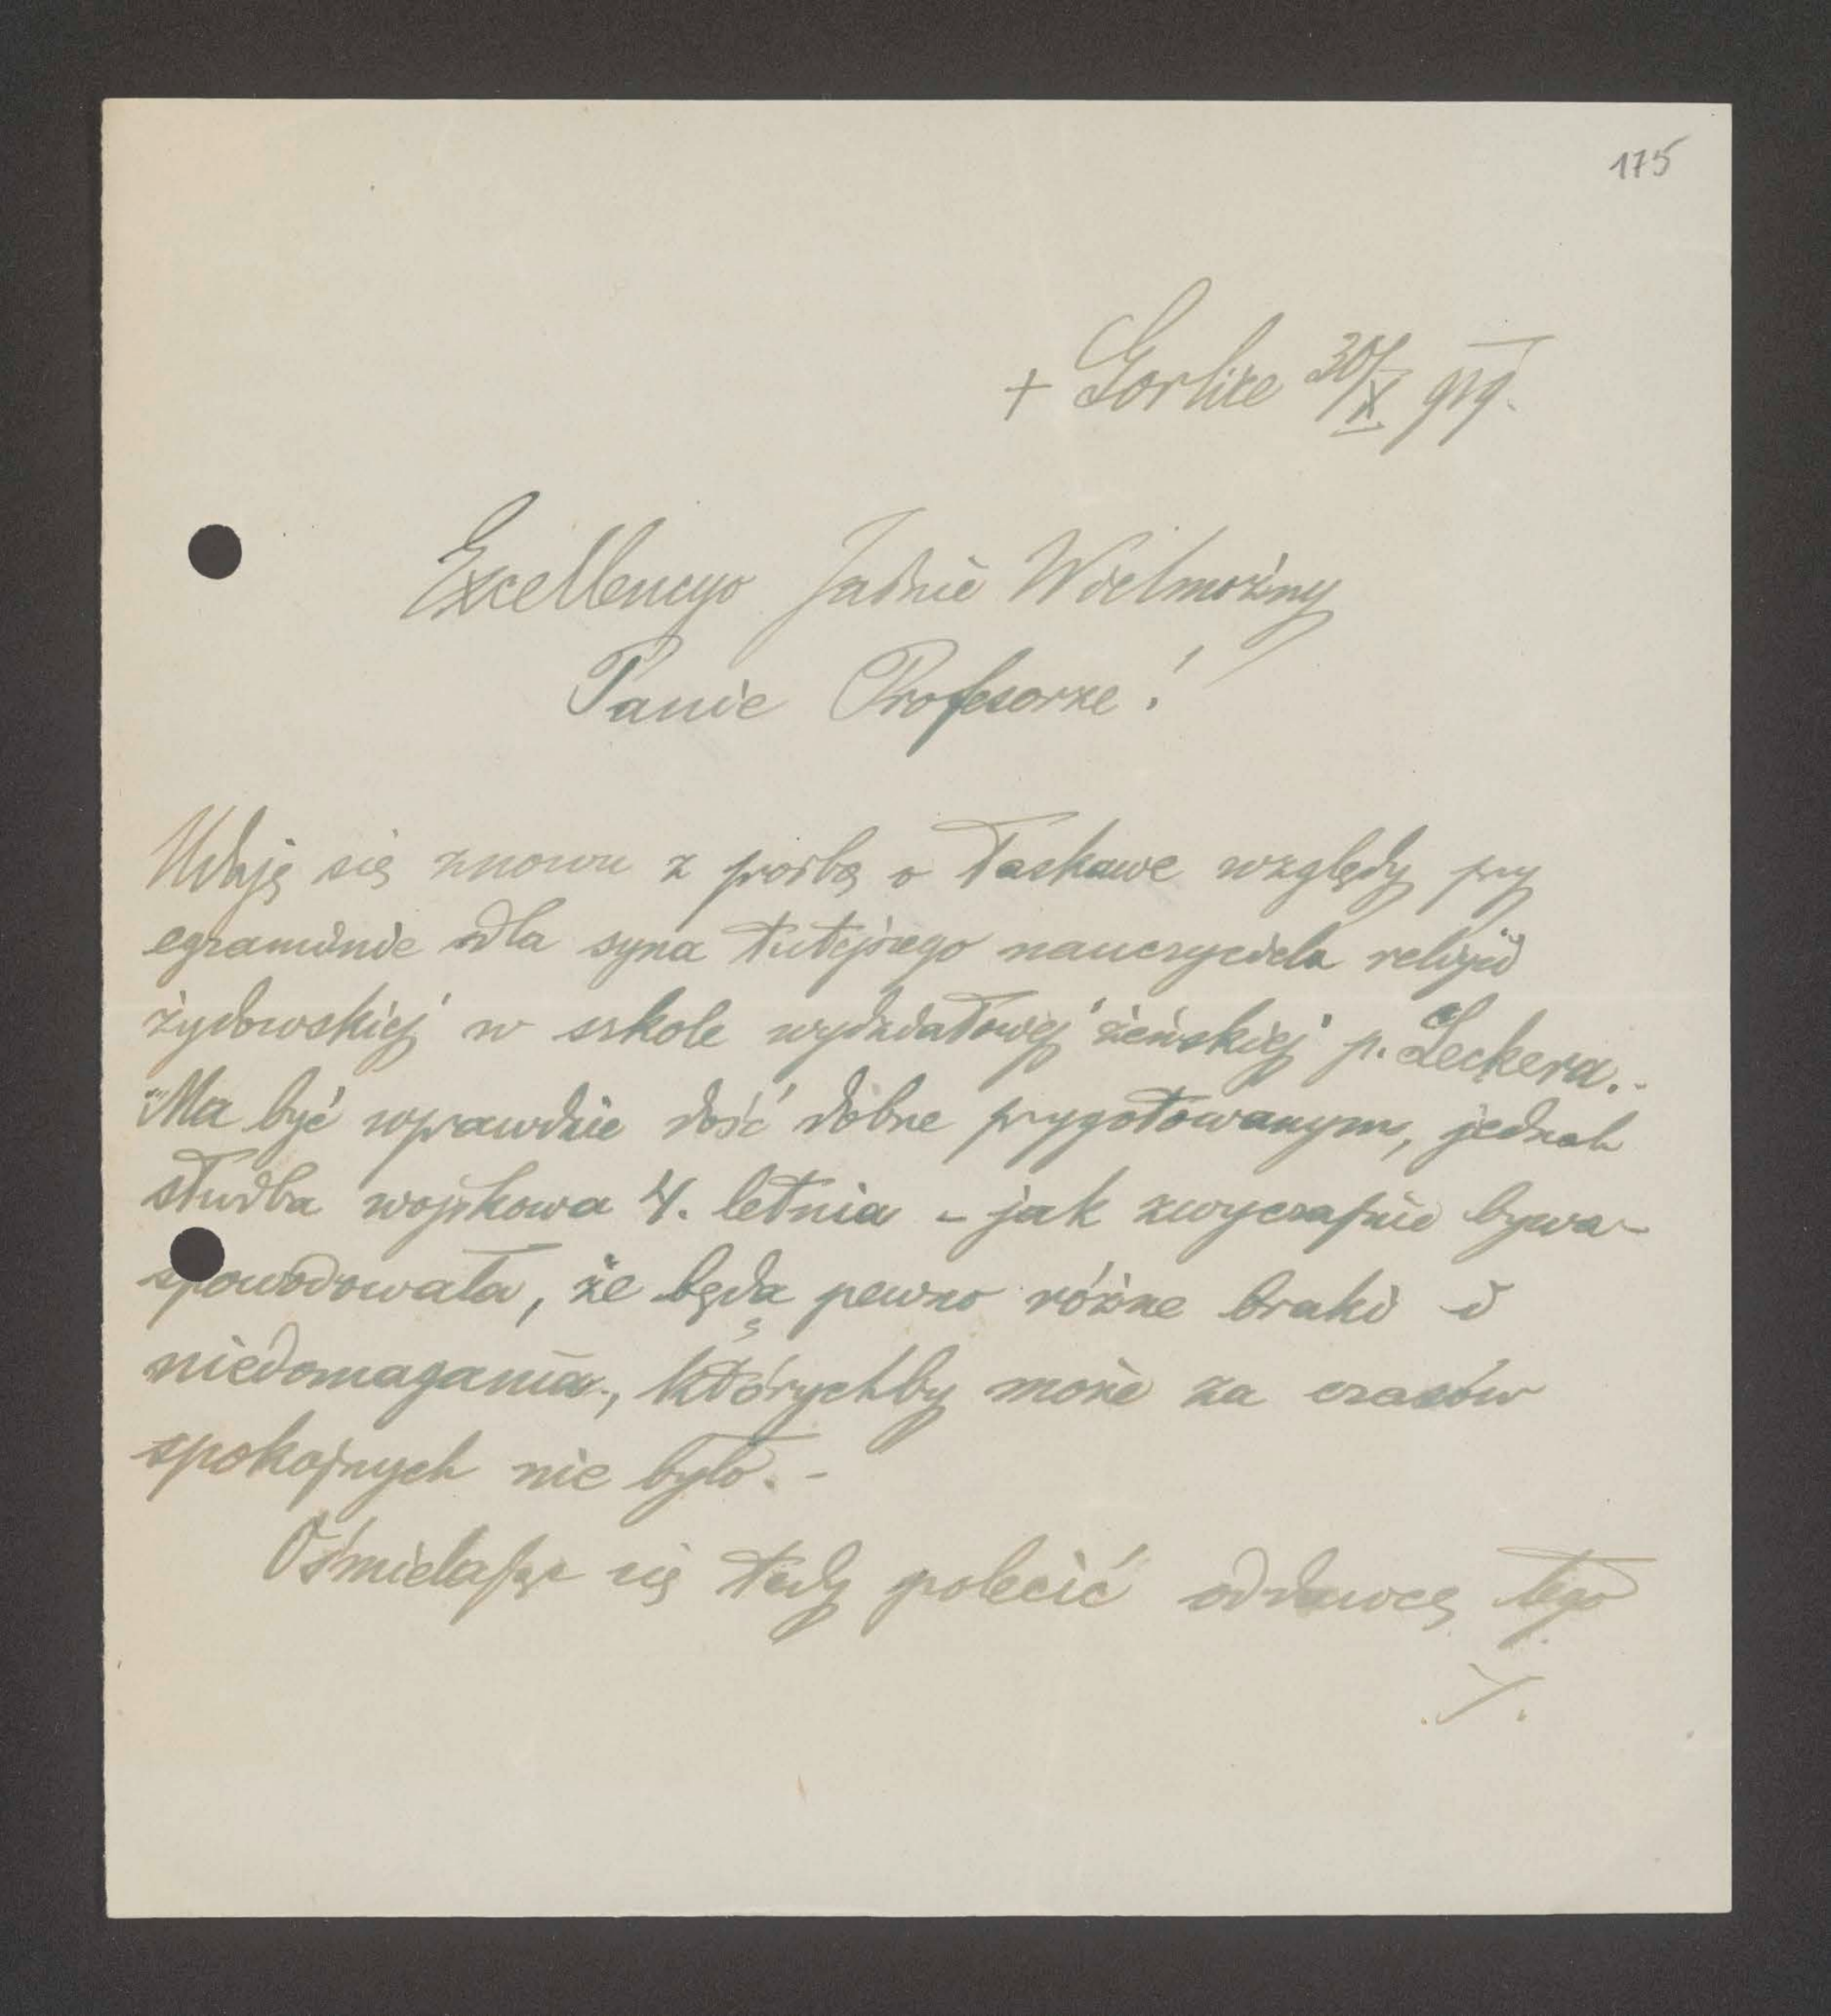 175
+ Gorlice 30/X 919.
Excellencyo Jaśnie Wielmożny
Panie Profesorze!
Udaję się znowu z prośbą o łaskawe względy przy
egzaminie dla syna tutejszego nauczyciela religii
żydowskiej w szkole wydziałowej żeńskiej p. Leckera.-
Ma być wprawdzie dość dobrze przygotowanym, jednak
służba wojskowa 4. letnia - jak zwyczajnie bywa -
spowodowała, że będą pewno różne braki i
niedomagania, którychby może za czasów
spokojnych nie było.-
Ośmielając się tedy polecić oddawcę tego
./.